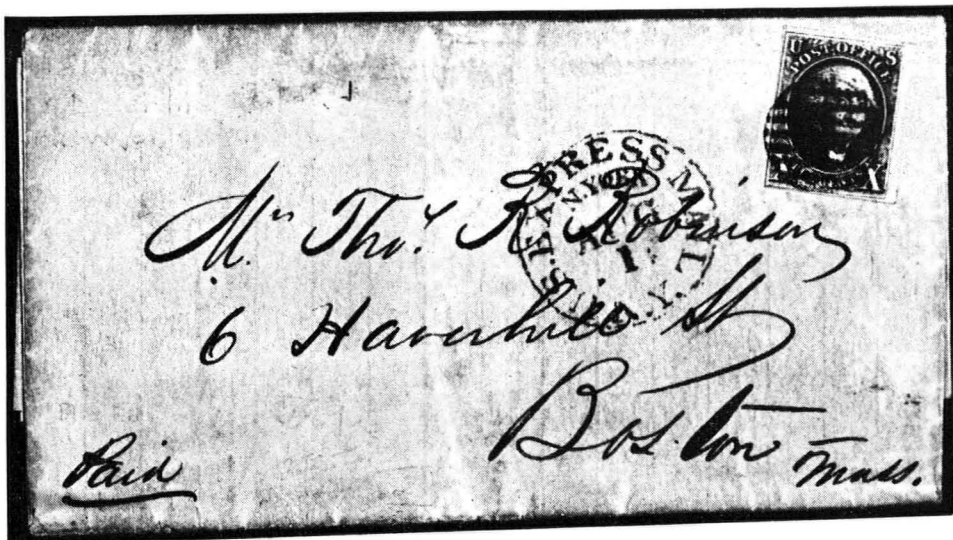 U S
POST OFFICE
X X
U.S. EXPRESS MAIL
N.Y.
N. YORK
1
Mr Thos. R Robinson
6 Haverhill St
Boston Mass.
Paid